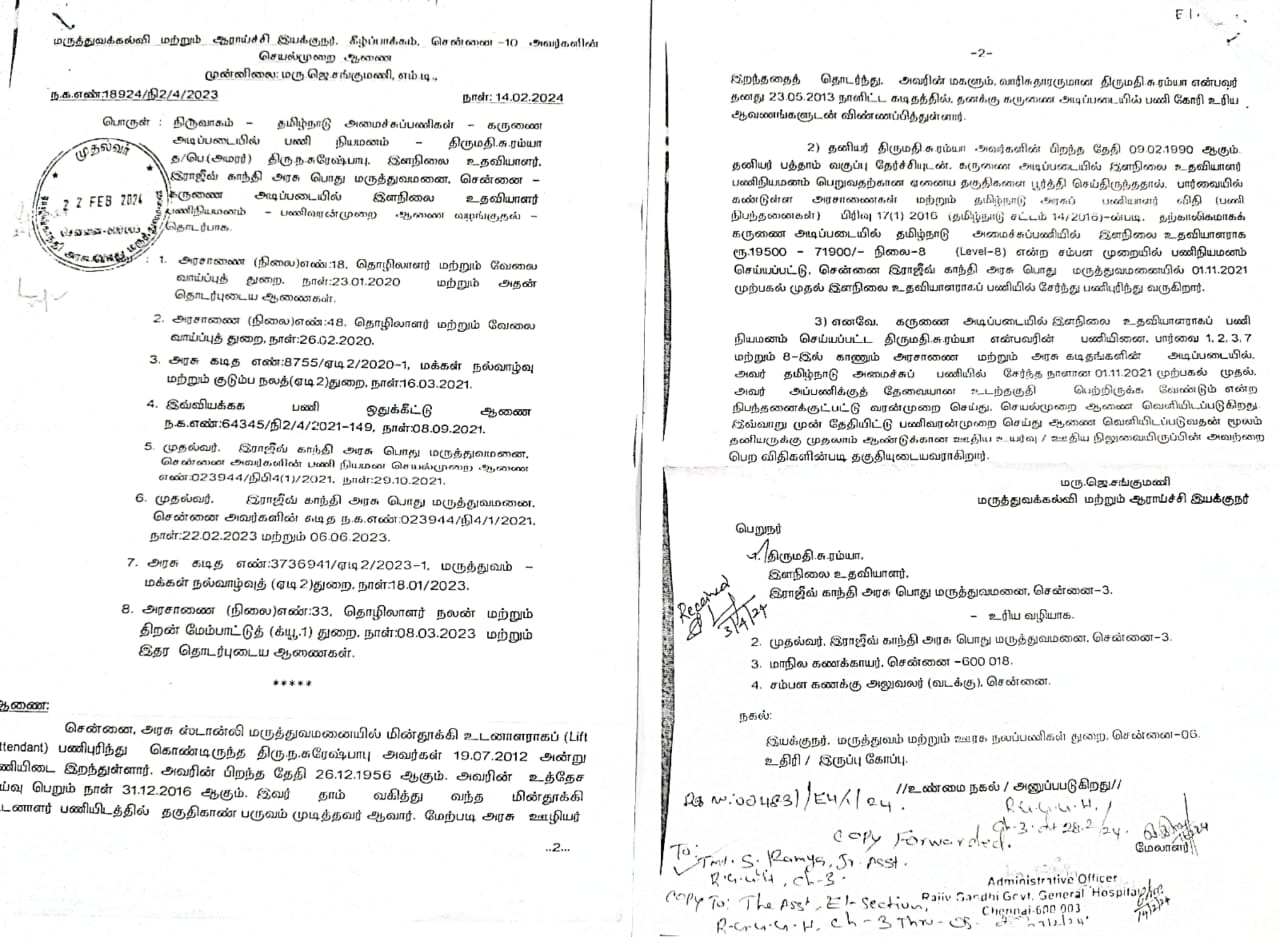 மருத்துவக்கல்வி மற்றும் ஆராய்ச்சி இயக்குநர், கீழ்ப்பாக்கம், சென்னை -10 அவர்களின்
செயல்முறை ஆணை
முன்னிலை: மரு.ஜெ.சங்குமணி, எம்.டி.,
ந.க.எண்:18924/நி2/4/2023 நாள்: 14.02.2024
பொருள் : நிருவாகம் – தமிழ்நாடு அமைச்சுப்பணிகள் – கருணை
அடிப்படையில் பணி நியமனம் – திருமதி.சு.ரம்யா
த/பெ.(அமரர்) திரு.ந.சுரேஷ்பாபு, இளநிலை உதவியாளர்,
இராஜீவ் காந்தி அரசு பொது மருத்துவமனை, சென்னை –
கருணை அடிப்படையில் இளநிலை உதவியாளர்
பணிநியமனம் – பணிவரன்முறை ஆணை வழங்குதல் –
தொடர்பாக.
முதல்வர்
22 FEB 2024
சென்னை-600003
: 1. அரசாணை (நிலை)எண்:18, தொழிலாளர் மற்றும் வேலை
வாய்ப்புத் துறை, நாள்:23.01.2020 மற்றும் அதன்
தொடர்புடைய ஆணைகள்.
2. அரசாணை (நிலை)எண்:48, தொழிலாளர் மற்றும் வேலை
வாய்ப்புத் துறை, நாள்:26.02.2020.
3. அரசு கடித எண்:8755/ஏடி2/2020-1, மக்கள் நல்வாழ்வு
மற்றும் குடும்ப நலத்(ஏடி2)துறை, நாள்:16.03.2021.
4. இவ்வியக்கக பணி ஒதுக்கீட்டு ஆணை
ந.க.எண்:64345/நி2/4/2021-149, நாள்:08.09.2021.
5. முதல்வர், இராஜீவ் காந்தி அரசு பொது மருத்துவமனை,
சென்னை அவர்களின் பணி நியமன செயல்முறை ஆணை
எண்:023944/நிபி4(1)/2021, நாள்:29.10.2021.
6. முதல்வர், இராஜீவ் காந்தி அரசு பொது மருத்துவமனை,
சென்னை அவர்களின் கடித ந.க.எண்:023944/நி4/1/2021,
நாள்:22.02.2023 மற்றும் 06.06.2023.
7. அரசு கடித எண்:3736941/ஏடி2/2023-1, மருத்துவம் –
மக்கள் நல்வாழ்வுத் (ஏடி2)துறை, நாள்:18.01/2023.
8. அரசாணை (நிலை)எண்:33, தொழிலாளர் நலன் மற்றும்
திறன் மேம்பாட்டுத் (க்யூ.1) துறை, நாள்:08.03.2023 மற்றும்
இதர தொடர்புடைய ஆணைகள்.
*****
ஆணை:
சென்னை, அரசு ஸ்டான்லி மருத்துவமனையில் மின்தூக்கி உடனாளராகப் (Lift
ttendant) பணிபுரிந்து கொண்டிருந்த திரு.ந.சுரேஷ்பாபு அவர்கள் 19.07.2012 அன்று
ணியிடை இறந்துள்ளார். அவரின் பிறந்த தேதி 26.12.1956 ஆகும். அவரின் உத்தேச
ய்வு பெறும் நாள் 31.12.2016 ஆகும். இவர் தாம் வகித்து வந்த மின்தூக்கி
டனாளர் பணியிடத்தில் தகுதிகாண் பருவம் முடித்தவர் ஆவார். மேற்படி அரசு ஊழியர்
..2...
E1.
-2-
இறந்ததைத் தொடர்ந்து, அவரின் மகளும், வாரிசுதாரருமான திருமதி.சு.ரம்யா என்பவர்
தனது 23.05.2013 நாளிட்ட கடிதத்தில், தனக்கு கருணை அடிப்படையில் பணி கோரி உரிய
ஆவணங்களுடன் விண்ணப்பித்துள்ளார்.
2) தனியர் திருமதி.சு.ரம்யா அவர்களின் பிறந்த தேதி 09.02.1990 ஆகும்.
தனியர் பத்தாம் வகுப்பு தேர்ச்சியுடன், கருணை அடிப்படையில் இளநிலை உதவியாளர்
பணிநியமனம் பெறுவதற்கான ஏனைய தகுதிகளை பூர்த்தி செய்திருந்ததால், பார்வையில்
கண்டுள்ள அரசாணைகள் மற்றும் தமிழ்நாடு அரசுப் பணியாளர் விதி (பணி
நிபந்தனைகள்) பிரிவு 17(1) 2016 (தமிழ்நாடு சட்டம் 14/2016)-ன்படி, தற்காலிகமாகக்
கருணை அடிப்படையில் தமிழ்நாடு அமைச்சுப்பணியில் இளநிலை உதவியாளராக
ரூ.19500 – 71900/– நிலை-8 (Level-8) என்ற சம்பள முறையில் பணிநியமனம்
செய்யப்பட்டு, சென்னை இராஜீவ் காந்தி அரசு பொது மருத்துவமனையில் 01.11.2021
முற்பகல் முதல் இளநிலை உதவியாளராகப் பணியில் சேர்ந்து பணிபுரிந்து வருகிறார்.
3) எனவே, கருணை அடிப்படையில் இளநிலை உதவியாளராகப் பணி
நியமனம் செய்யப்பட்ட திருமதி.சு.ரம்யா என்பவரின் பணியினை, பார்வை 1, 2, 3, 7
மற்றும் 8-இல் காணும் அரசாணை மற்றும் அரசு கடிதங்களின் அடிப்படையில்,
அவர் தமிழ்நாடு அமைச்சுப் பணியில் சேர்ந்த நாளான 01.11.2021 முற்பகல் முதல்,
அவர் அப்பணிக்குத் தேவையான உடற்தகுதி பெற்றிருக்க வேண்டும் என்ற
நிபந்தனைக்குட்பட்டு வரன்முறை செய்து, செயல்முறை ஆணை வெளியிடப்படுகிறது
இவ்வாறு முன் தேதியிட்டு பணிவரன்முறை செய்து ஆணை வெளியிடப்படுவதன் மூலம்
தனியருக்கு முதலாம் ஆண்டுக்கான ஊதிய உயர்வு / ஊதிய நிலுவையிருப்பின் அவற்றை
பெற விதிகளின்படி தகுதியுடையவராகிறார்.
மரு.ஜெ.சங்குமணி
மருத்துவக்கல்வி மற்றும் ஆராய்ச்சி இயக்குநர்
பெறுநர்
1. திருமதி.சு.ரம்யா,
இளநிலை உதவியாளர்,
இராஜீவ் காந்தி அரசு பொது மருத்துவமனை, சென்னை-3.
– உரிய வழியாக.
Received
3/4/24
2. முதல்வர், இராஜீவ் காந்தி அரசு பொது மருத்துவமனை, சென்னை-3.
3. மாநில கணக்காயர், சென்னை -600 018.
4. சம்பள கணக்கு அலுவலர் (வடக்கு), சென்னை.
நகல்:
இயக்குநர், மருத்துவம் மற்றும் ஊரக நலப்பணிகள் துறை, சென்னை-06.
உதிரி / இருப்பு கோப்பு.
//உண்மை நகல் / அனுப்பப்படுகிறது//
Ref No: 004831/E4/1/24. R.G.G.G.H,
Ch-3. dt 28.2/24.
Copy Forwarded.
மேலாளர்
To:
Tmt. S. Ramya, Jr. Asst.
R.G.G.G.H, Ch-3.
Administrative Officer
Rajiv Gandhi Govt. General Hospital
Chennai-600 003
Copy To: The Asst, E1-Section,
R.G.G.G.H, Ch-3 Thru-